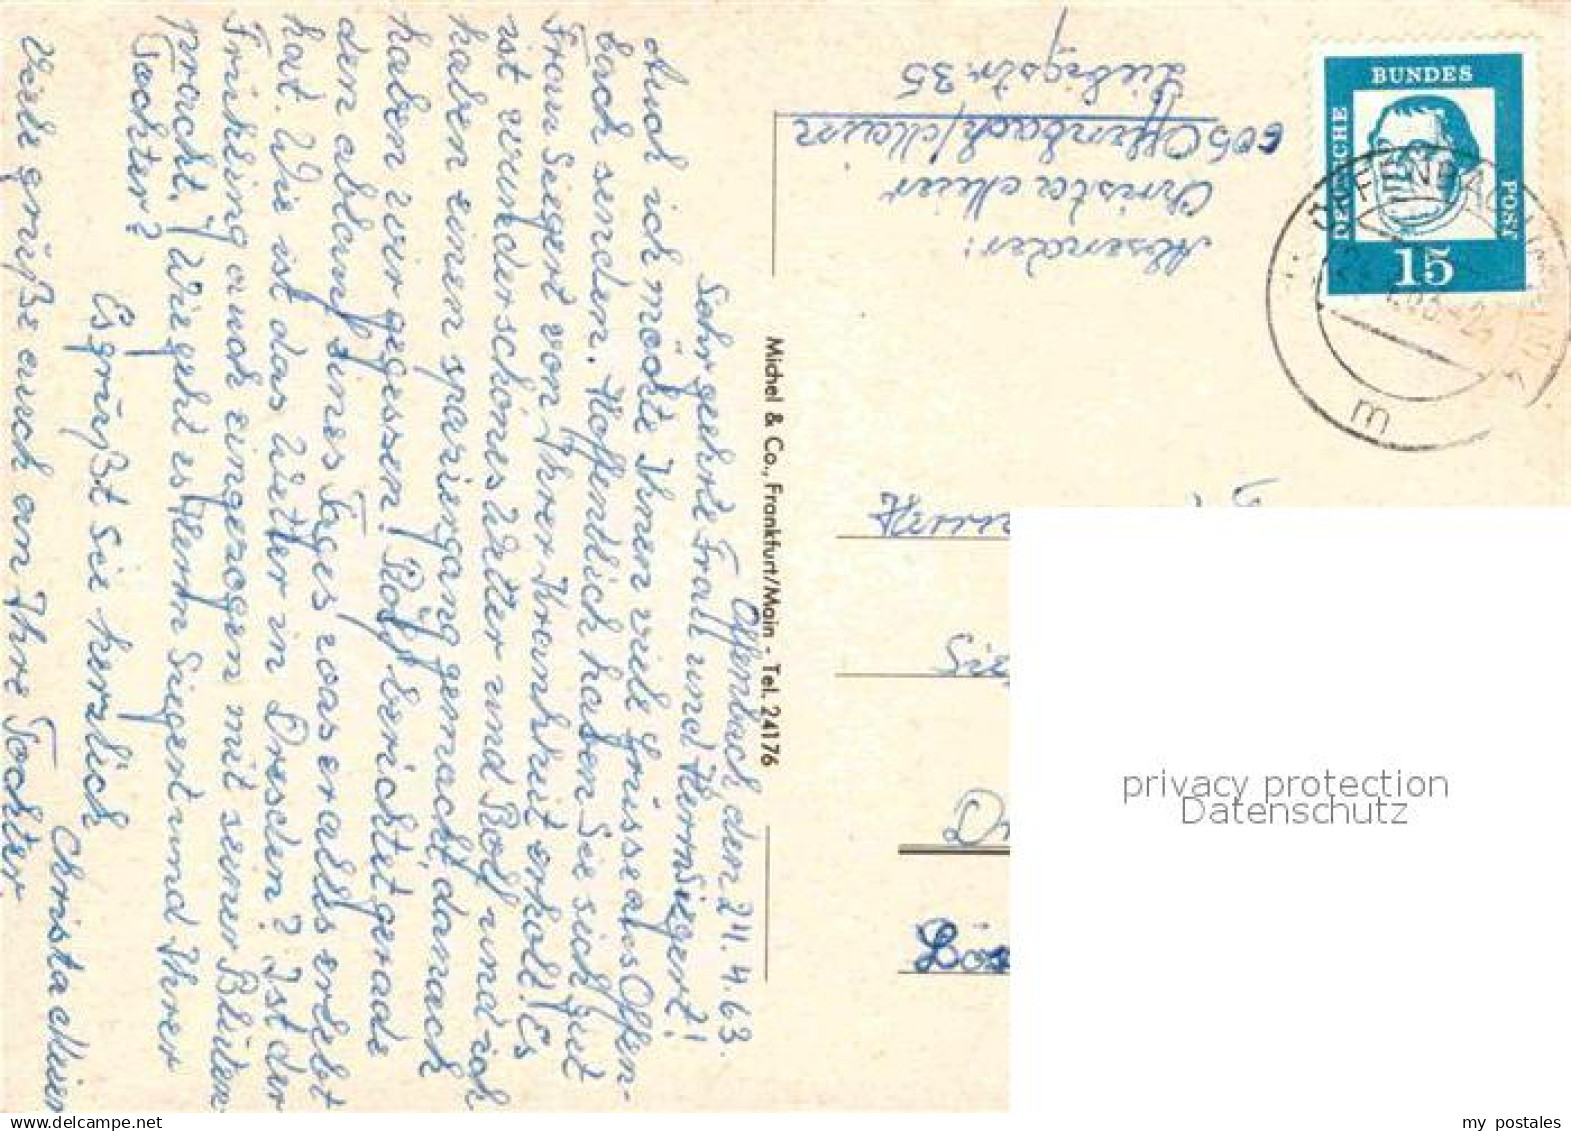 Offenbach, den 24. 4. 63.
Sehr geehrte Frau und Herrn Siegert!
Auch ich möchte Ihnen viele Grüsse aus Offen-
bach senden. Hoffentlich haben Sie sich gut
Frau Siegert von Ihrer Krankheit erholt. Es
ist wunderschönes Wetter und Rolf und ich
haben einen spaziergang gemacht, danach
haben wir gegessen! Rolf berichtet gerade
den ablauf eines Tages was er alles erlebt
hat. Wie ist das Wetter in Dresden? Ist der
Frühling auch eingezogen mit seiner Blüten
pracht. Wie geht es Herrn Siegert und Ihrer
Tochter?
Es grüßt sie herzlich
Christa Meier
Viele grüße auch an Ihre Tochter.
Michel & Co., Frankfurt/Main - Tel. 24176
Absender:
Christa Meier
605 Offenbach/Main
Liebigstr. 35
DEUTSCHE
BUNDES
POST
15
OFFENBACH
m
Herrn
Sieg
D
Bös
privacy protection
Datenschutz
my_postales